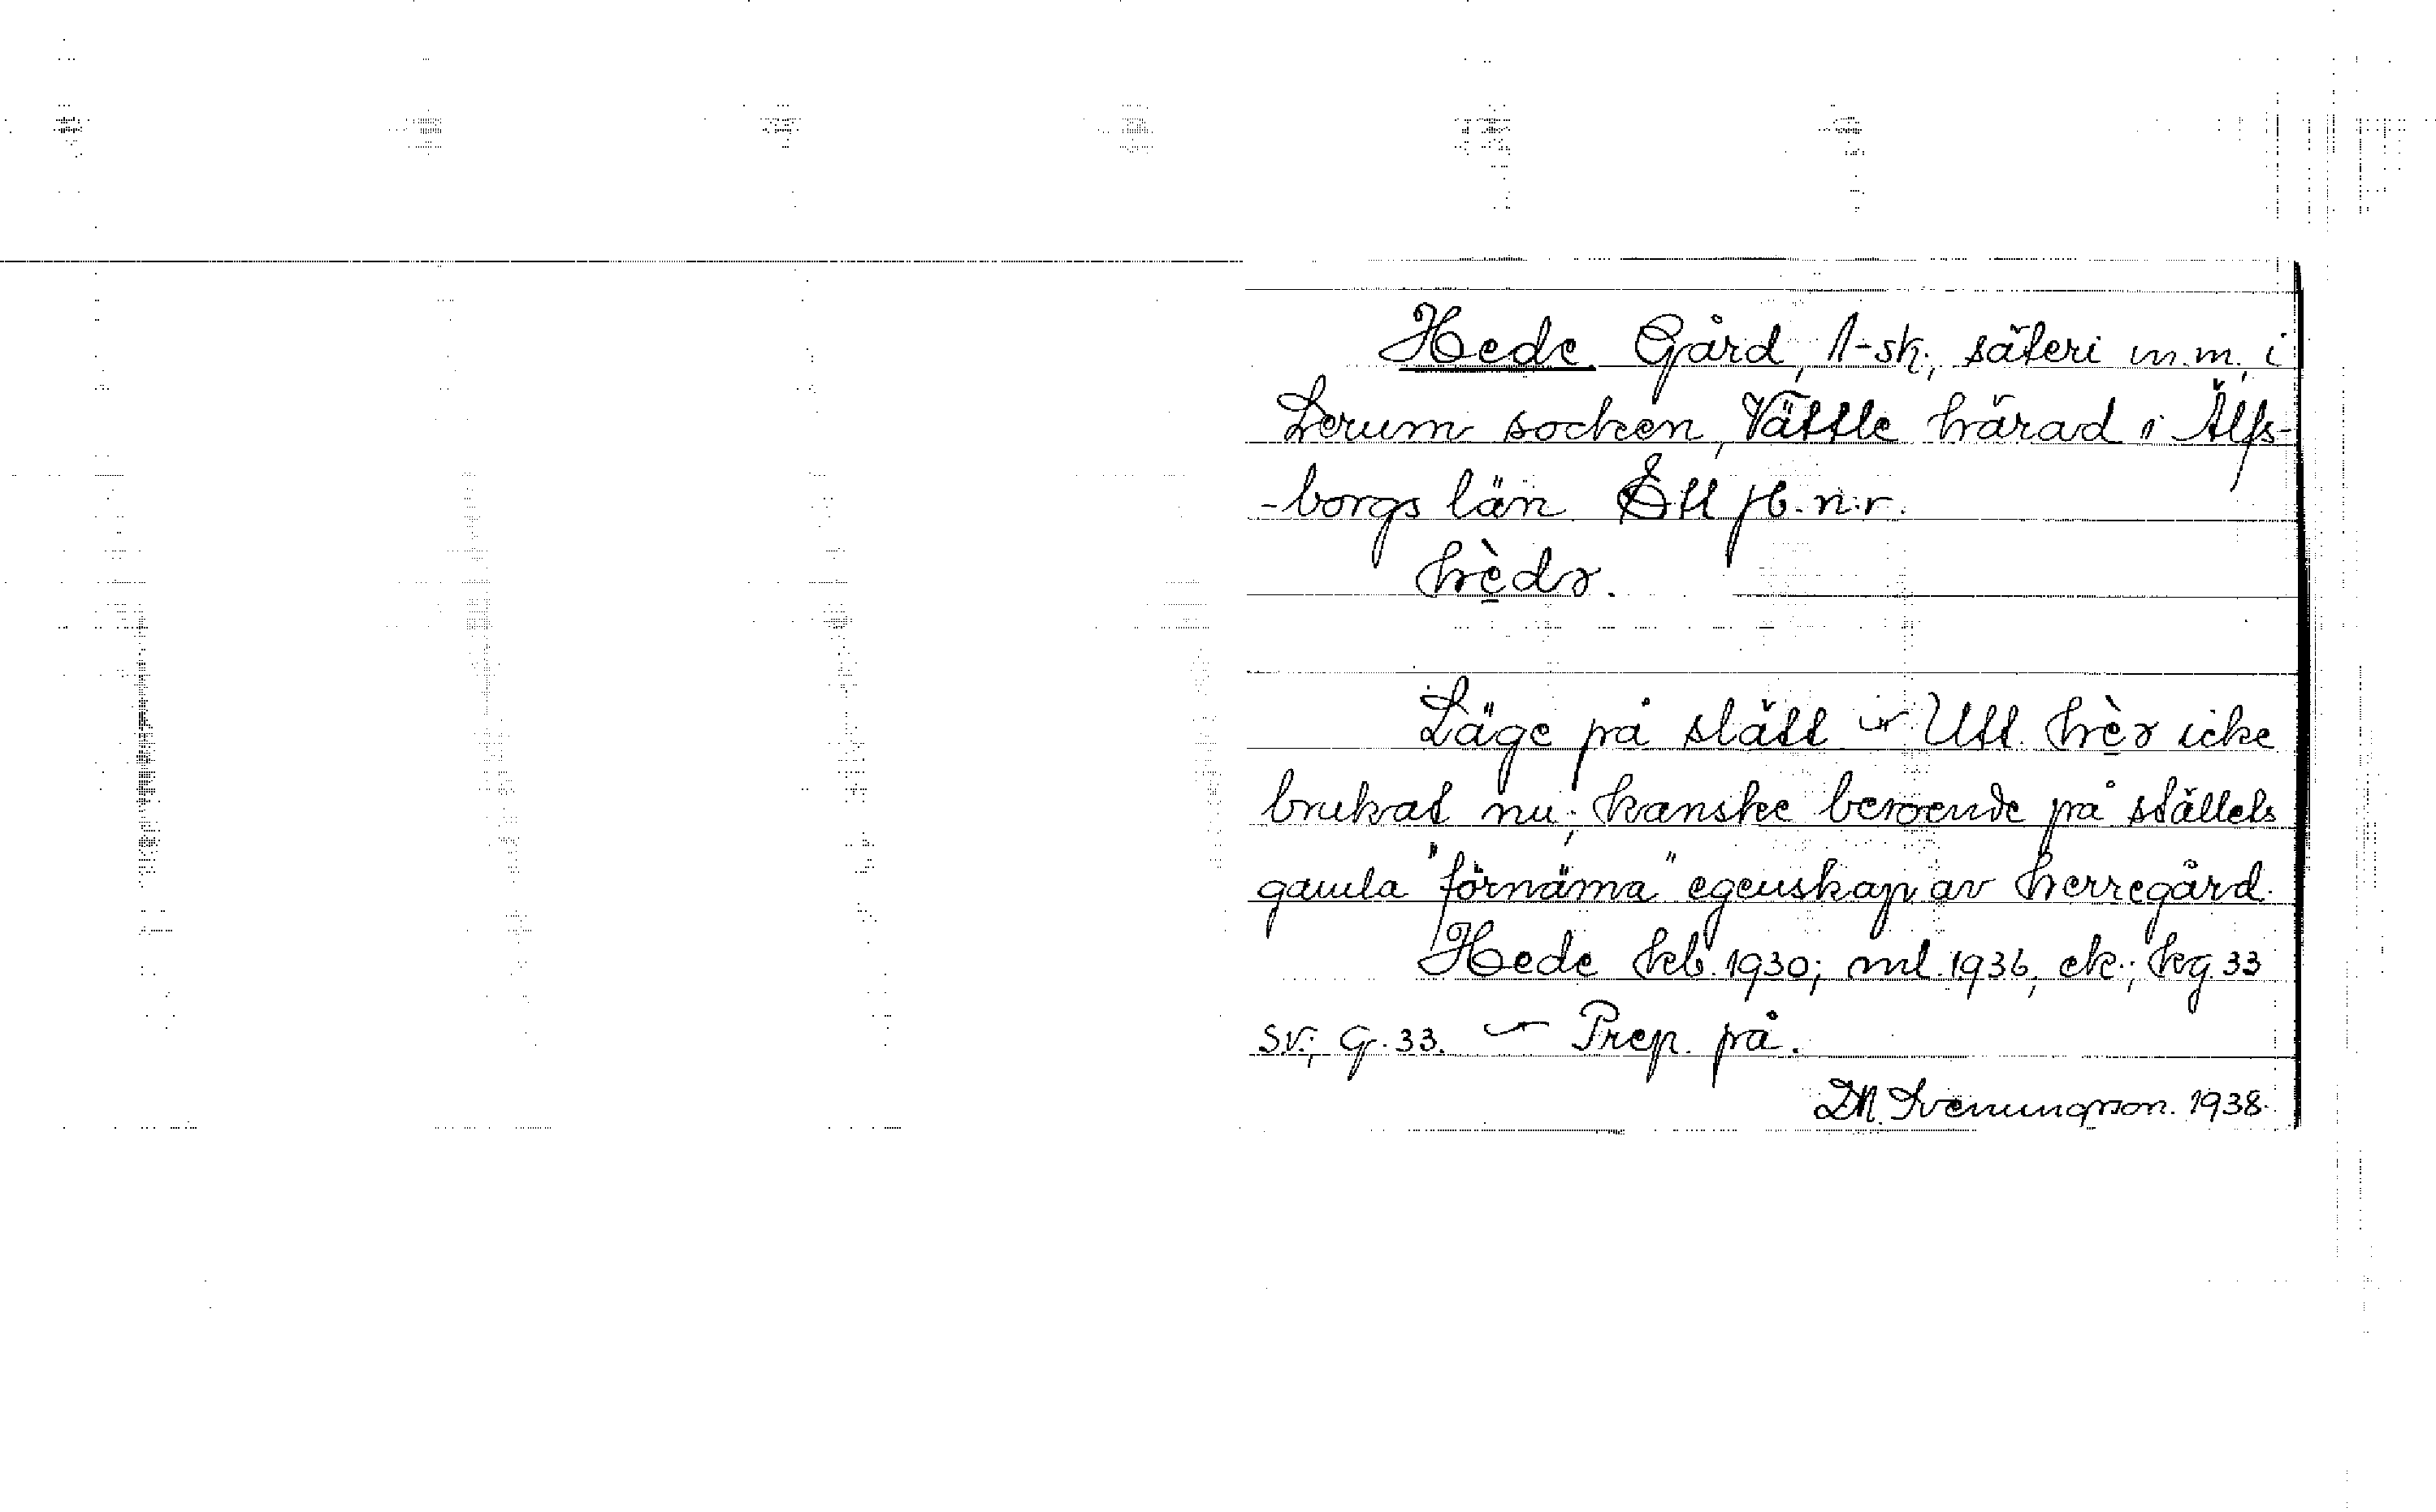 Hede. Gård, 1-sk., säteri m.m., i
Lerum socken, Vättle härad i Älfs-
-borgs län. Ett jb.n:r.
hèdɘ.
Läge på slätt. – Utt. hèɘ icke
brukat nu; kanske beroende på ställets
gamla "förnäma" egenskap av herregård.
Hede kb. 1930; ml. 1936, ek.; kg. 33
sv.; G. 33. – Prep. på.
Svenungsson. 1938.